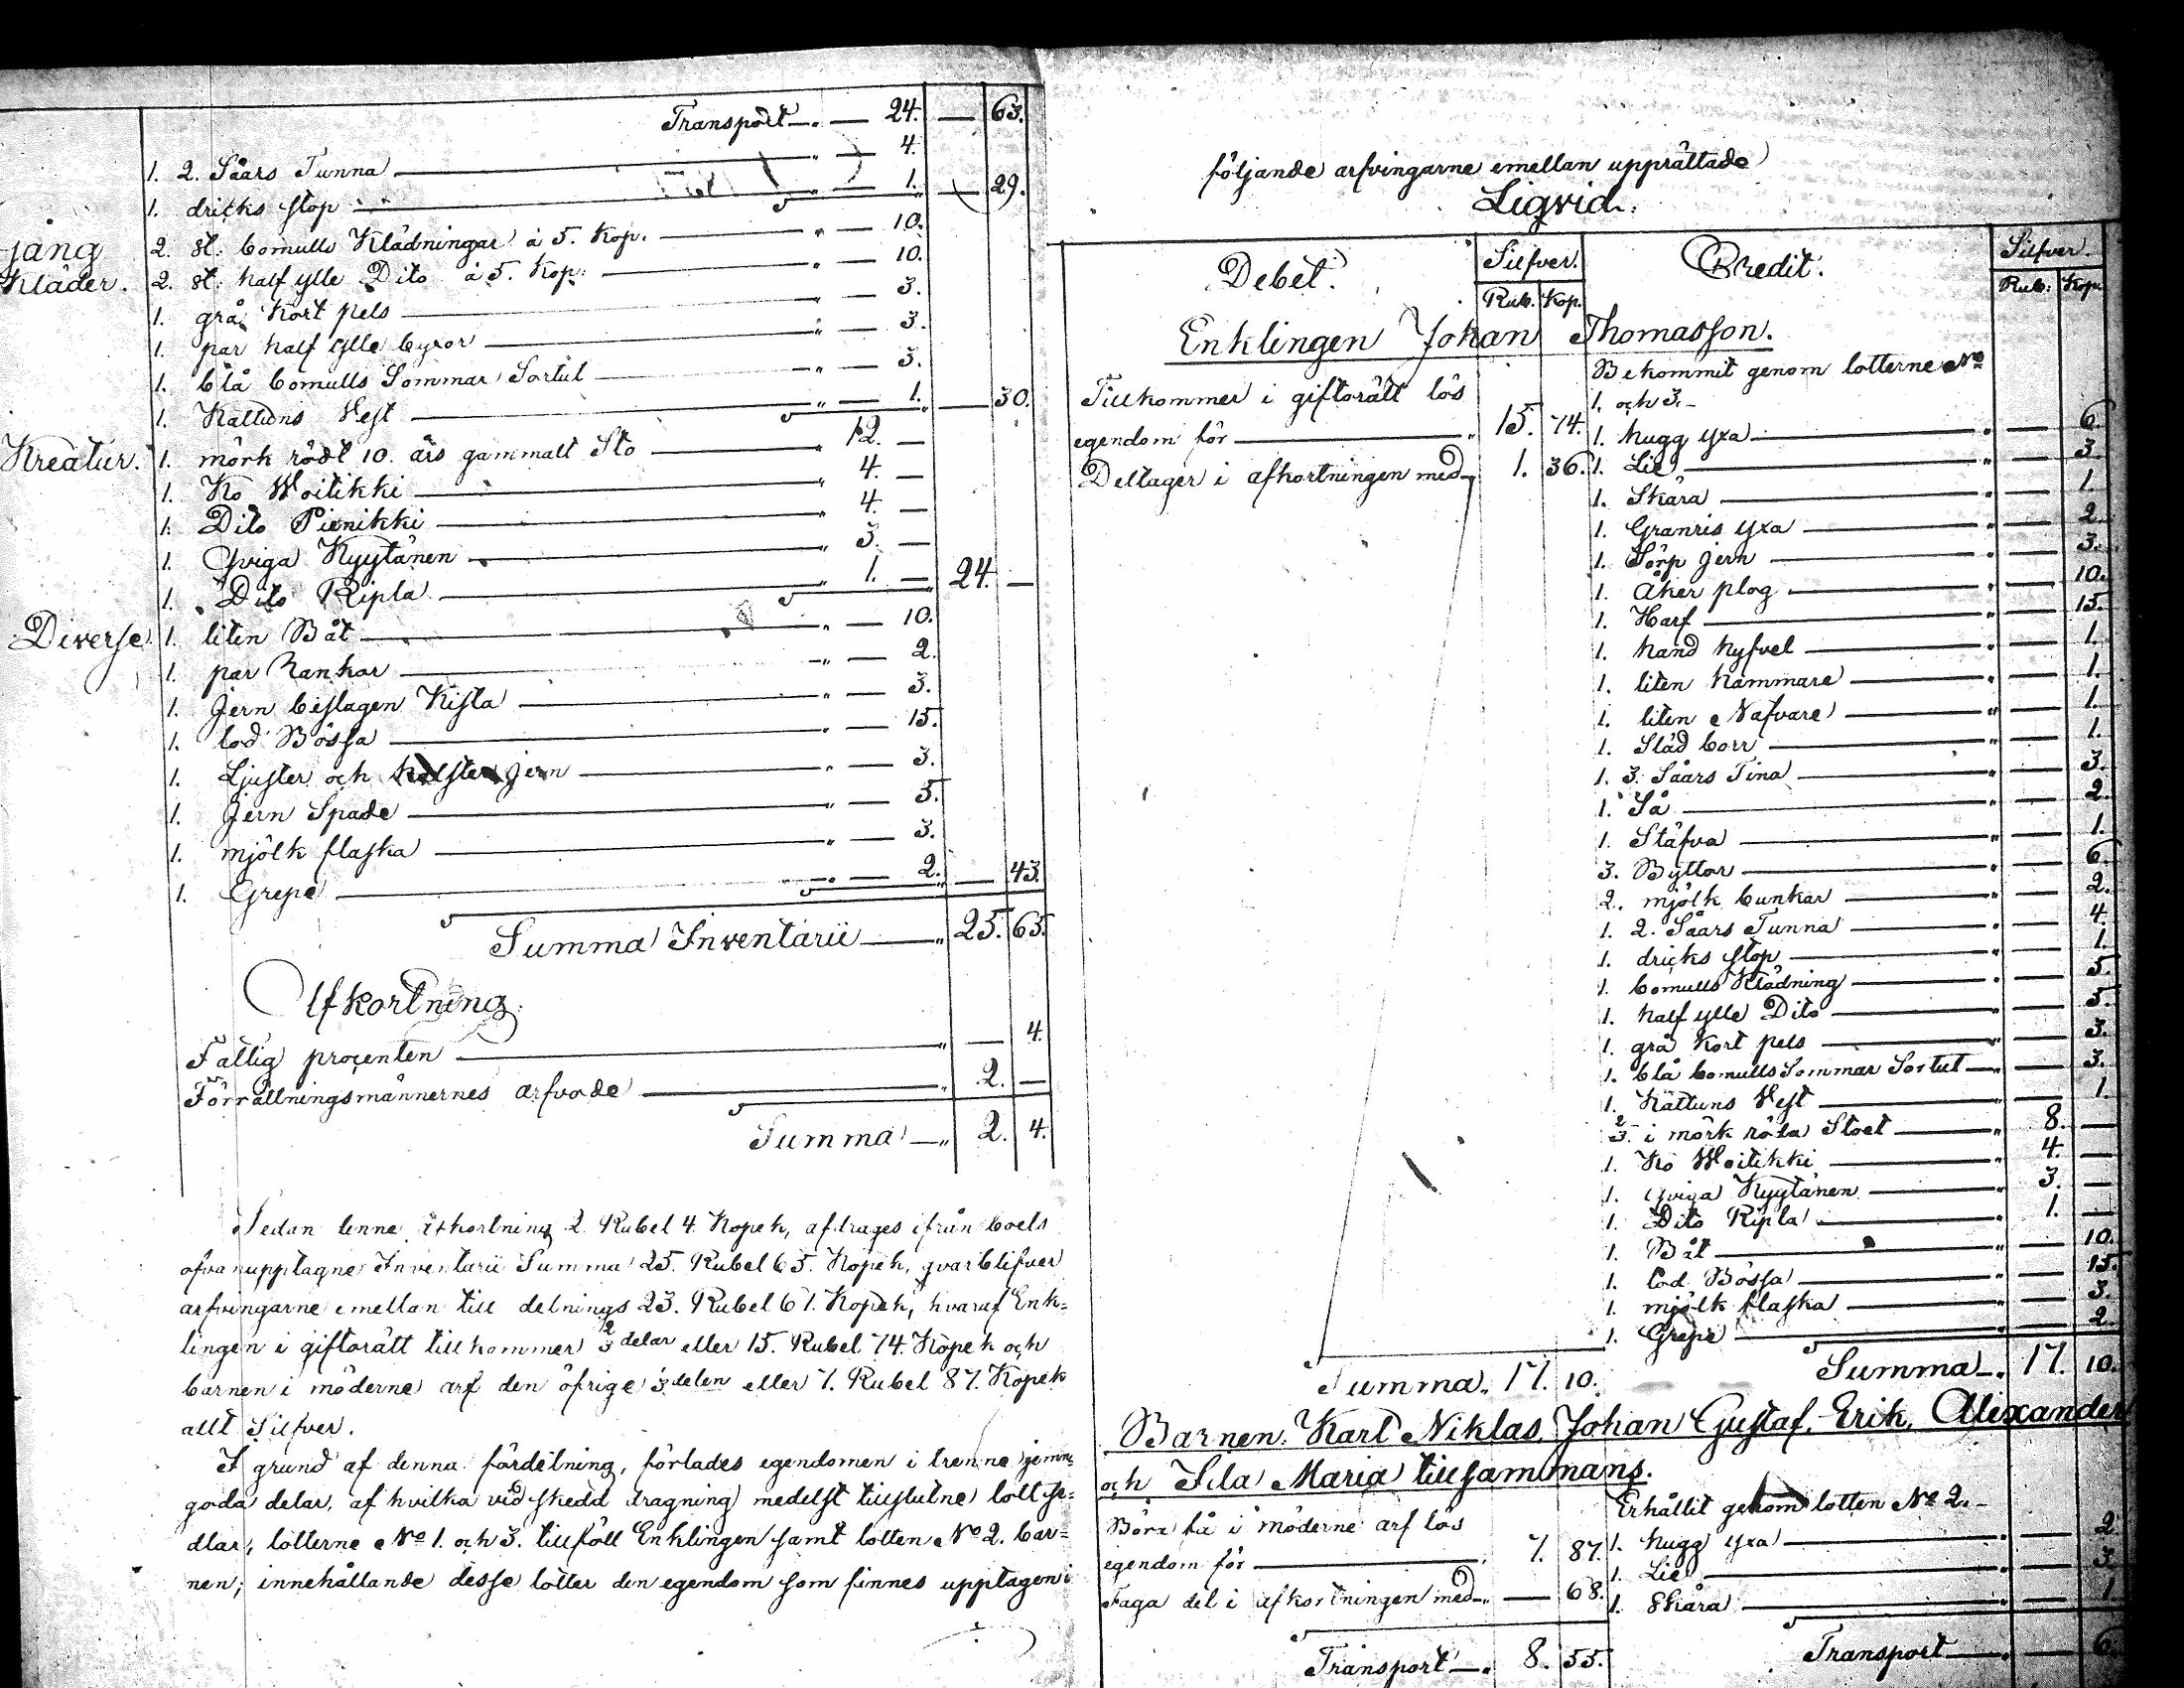 Transport — „ — 24. — 63.
1. 2. Såars Tunna — „ — 4.
1. dricks stop — „ — 1. — 29.
Gång Kläder. 2. st. bomulls Klädningar à 5. Kop. — „ — 10.
2. st. half ylle Dito à 5. Kop. — „ — 10.
1. grå Kort pels — „ — 3.
1. par half ylle byxor — „ — 3.
1. blå bomulls Sommar Sortut — „ — 3.
1. Kattuns Vest — „ — 1. — 30.
Kreatur. 1. mörk rödt 10. års gammalt Sto — „ 12. —
1. Ko Woitikki — „ 4. —
1. Dito Pienikki — „ 4. —
1. Qviga Kyytänen — „ 3. —
1. Dito Ripla — „ 1. — 24. —
Diverse. 1. liten Båt — „ — 10.
1. par Rankor — „ — 2.
1. Jern beslagen Kista — „ — 3.
1. lod Bössa — „ — 15.
1. Ljuster och halster jern — „ — 3.
1. Jern Spade — „ — 5.
1. mjölk flaska — „ — 3.
1. Grepe — „ — 2. — 43.
Summa Inventarii — „ 25. 65.
Afkortning.
Fattig procenten — „ — 4.
Förrättningsmännernes arfvode — „ 2. —
Summa — „ 2. 4.
Sedan denne afkortning 2. Rubel 4. Kopek, afdrages ifrån boets
ofvanupptagne Inventarii Summa 25. Rubel 65. Kopek, qvarblifver
arfvingarne emellan till delnings 23. Rubel 61. Kopek, hvaraf Enk=
lingen i giftorätt tillkommer 2/3 delar eller 15. Rubel 74. Kopek och
barnen i möderne arf den öfrige 3.delen eller 7. Rubel 87. Kopek
allt Silfver.
I grund af denna fördelning, förlades egendomen i trenne jemn=
goda delar, af hvilka vid skedd dragning medelst tillslutne lott se=
dlar, lotterne No 1. och 3. tillföll Enklingen samt lotten No 2. bar=
nen; innehållande desse lotter den egendom som finnes upptagen i
följande arfvingarne emellan upprättade
Liqvid.
Debet. Silfver. Rub. Kop. Credit. Silfver. Rub. Kop.
Enklingen Johan Thomasson.
Tillkommer i giftorätt lös
egendom för — „ 15. 74.
Deltager i afkortningen med „ 1. 36.
Bekommit genom lotterne No
1. och 3. –
1. hugg yxa — „ — 6.
1. Lie — „ — 3.
1. Skära — „ — 1.
1. Granris yxa — „ — 2.
1. Sörp jern — „ — 3.
1. åker plog — „ — 10.
1. Harf — „ — 15.
1. hand hyfvel — „ — 1.
1. liten hammare — „ — 1.
1. liten Nafvare — „ — 1.
1. Städ borr — „ — 1.
1. 3. Såars Tina — „ — 3.
1. Så — „ — 2.
1. Stäfva — „ — 1.
3. Byttor — „ — 6.
2. mjölk bunkar — „ — 2.
1. 2. Såars Tunna — „ — 4.
1. dricks stop — „ — 1.
1. bomulls Klädning — „ — 5.
1. half ylle Dito — „ — 5.
1. grå Kort pels — „ — 3.
1. blå bomulls Sommar Sortut — „ — 3.
1. Kattuns Vest — „ — 1.
2/3. i mörk röda Stoet — „ 8. —
1. Ko Woitikki — „ 4. —
1. Qviga Kyytänen — „ 3. —
1. Dito Ripla — „ 1. —
1. Båt — „ — 10.
1. lod Bössa — „ — 15.
1. mjölk flaska — „ — 3.
1. Grepe — „ — 2.
Summa „ 17. 10. Summa — „ 17. 10.
Barnen: Karl Niklas, Johan Gustaf, Erik, Alexander
och Fila Maria tillsammans.
Böra få i möderne arf lös
egendom för — „ 7. 87.
Taga del i afkortningen med „ — 68.
Transport — „ 8. 55.
Erhållit genom lotten No 2. –
1. hugg yxa — „ — 2.
1. Lie — „ — 3.
1. Skära — „ — 1.
Transport — „ — 6.